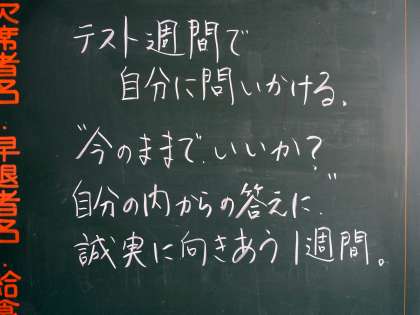 テスト週間で
自分に問いかける。
“今のままで、いいか？”
自分の内からの答えに
誠実に向きあう1週間。
欠席者名・早退者名・給食